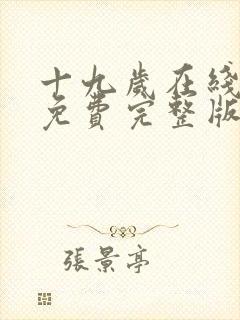 十九歲在綫
免費完整版
張景亭